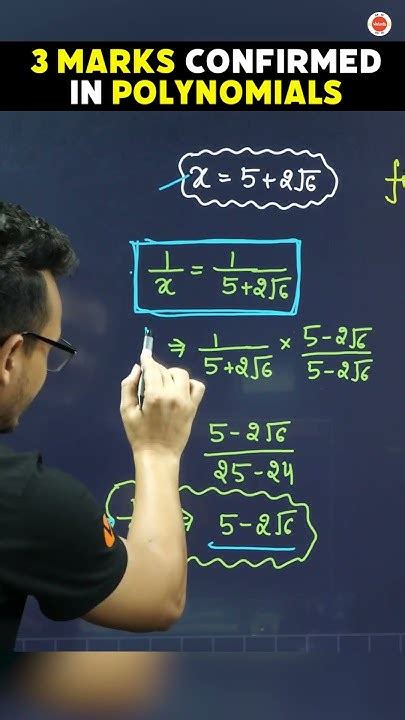 3 MARKS CONFIRMED
IN POLYNOMIALS
x = 5 + 2√6
1/x = 1/(5+2√6)
⇒ 1/(5+2√6) × (5-2√6)/(5-2√6)
(5-2√6)/(25-24)
⇒ 5-2√6